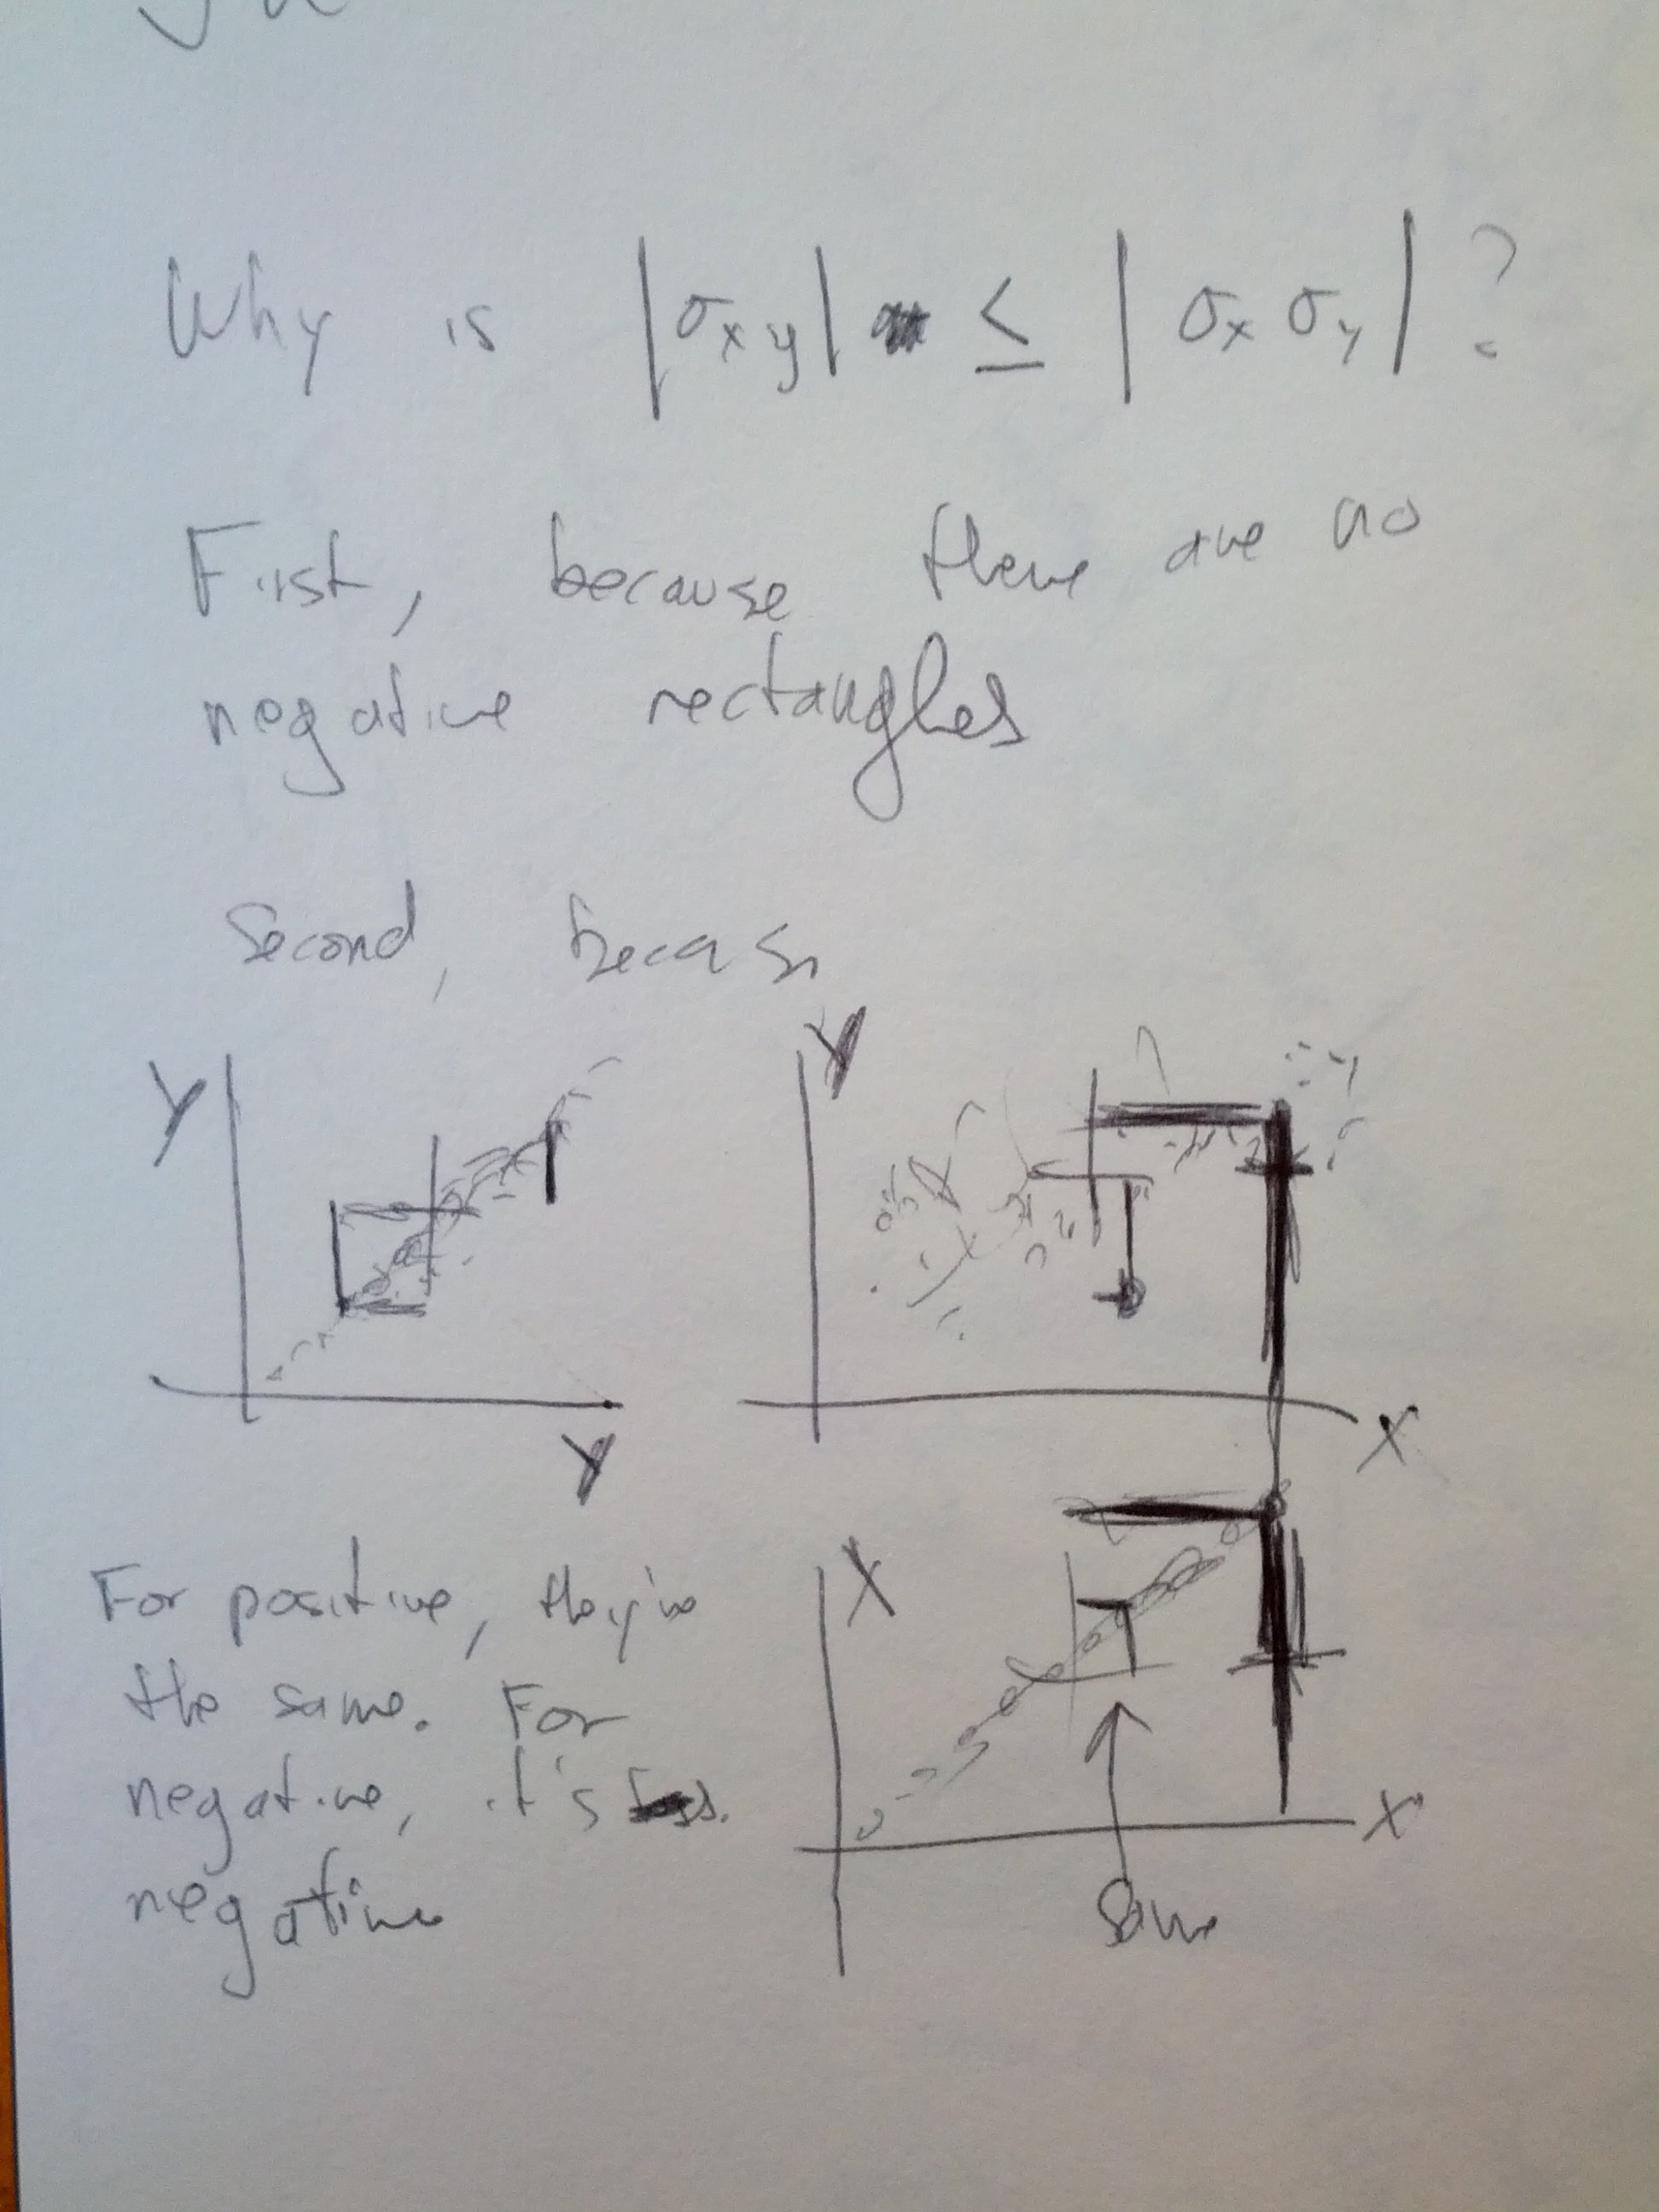 Why is |σxy| ≤ |σx σy|?
First, because there are no
negative rectanghes
Second, becaus
Y
Y
Y
X
For positive, they're
the same. For
negative, it's
negative
X
X
Same